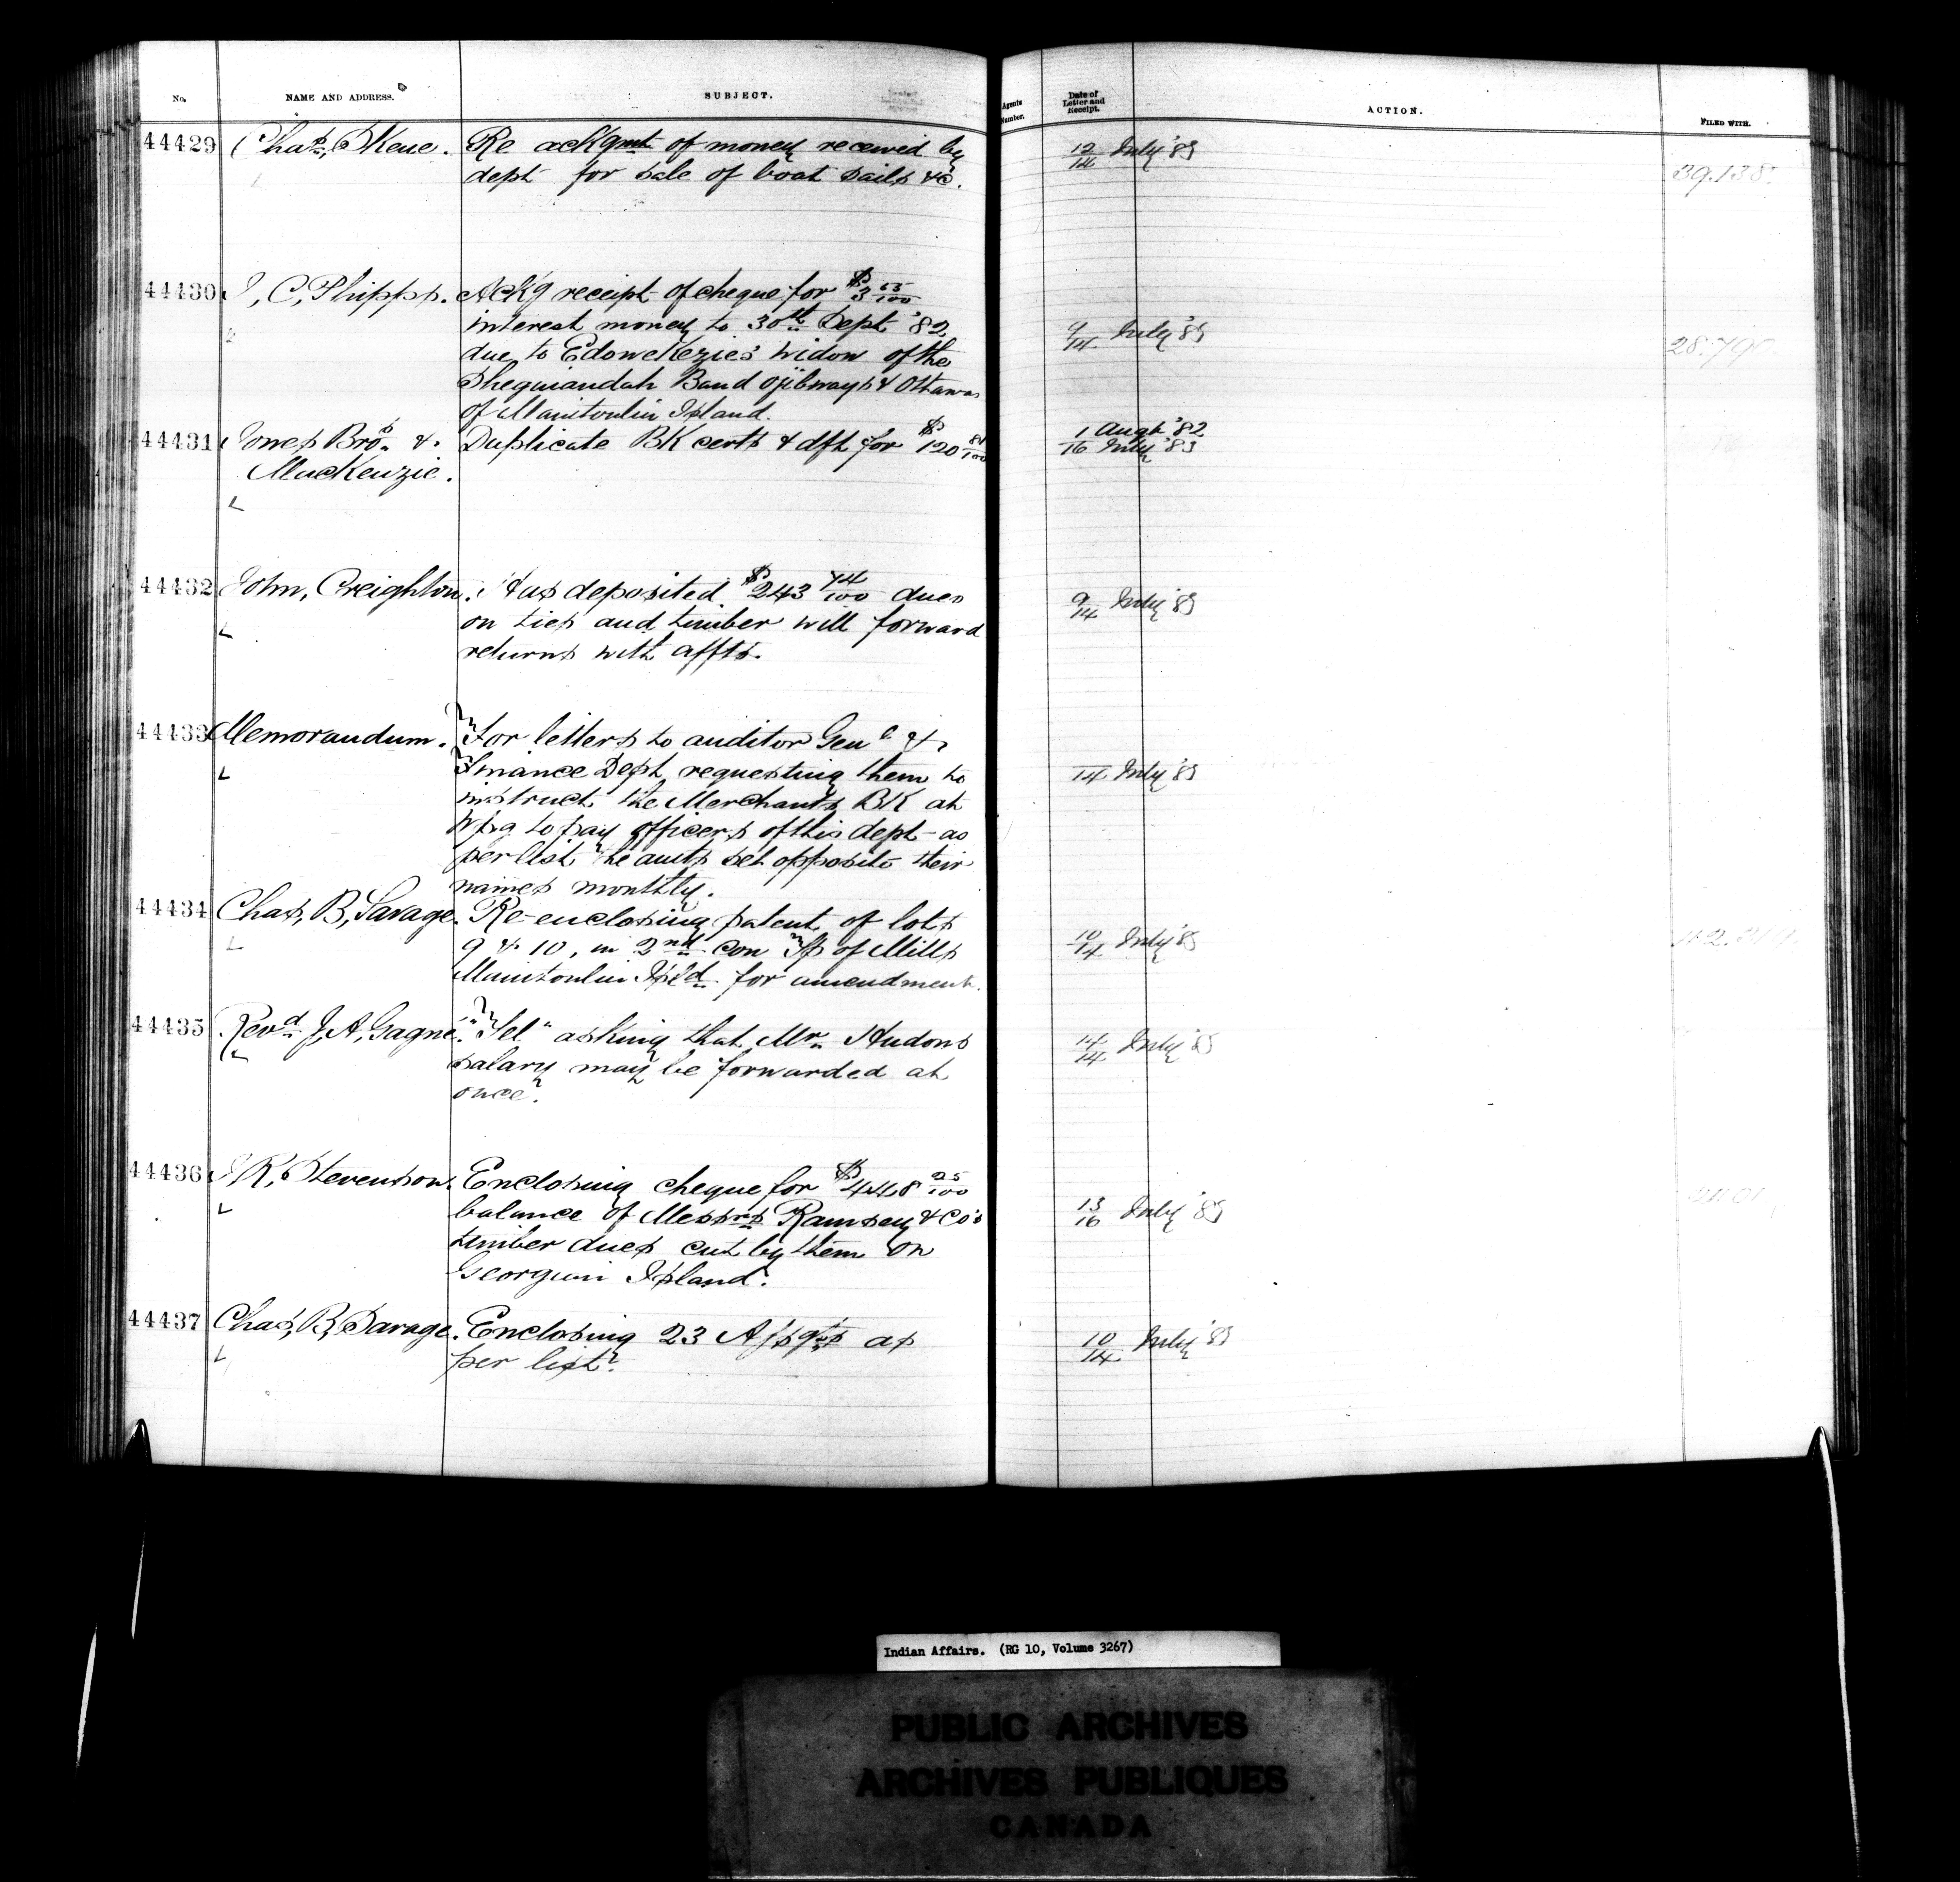 No. NAME AND ADDRESS. SUBJECT. Agents Number. Date of Letter and Receipt. ACTION. FILED WITH.
44429 Chas. Skene. Re ackgmt of money received by 12/14 July '83
dept for sale of boat sails &c. 39.138
44430 J, C, Phipps. Ackg receipt of cheque for $3 65/100
interest money to 30th Sept '82 9/14 July '83
due to Edowekezies widow of the 28.79
Sheguiandah Band Ojibways & Ottawas
of Manitoulin Island.
44431 Jones Bros & Duplicate BK certs & dft for $120 81/100 1 Augt '82
MacKenzie. 16 July '83
44432 John, Creighton. Has deposited $243 74/100 dues 9/14 July '83
on ties and timber will forward
returns with affts.
44433 Memorandum. For letters to auditor Genl &
Finance Dept requesting them to 14 July '83
instruct the Merchants BK at
Wpg to pay officers of this dept - as
per list the amts set opposite their
names monthly.
44434 Chas, B, Savage. Re-enclosing patent of lots
9 & 10, in 2nd con Tp of Mills 10/14 July '83
Manitoulin Isl'd for amendment.
44435 Revd J, A, Gagne. "Tel" asking that Mr. Hudons 14/14 July '83
salary may be forwarded at
once.
44436 J K, Stevenson. Enclosing cheque for $448 25/100
balance of Messrs Ramsey & Co's 13/16 July '83
timber dues cut by them on
Georgian Island.
44437 Chas, B, Savage. Enclosing 23 Assgts as 10/14 July '83
per list.
Indian Affairs. (RG 10, Volume 3267)
PUBLIC ARCHIVES
ARCHIVES PUBLIQUES
CANADA